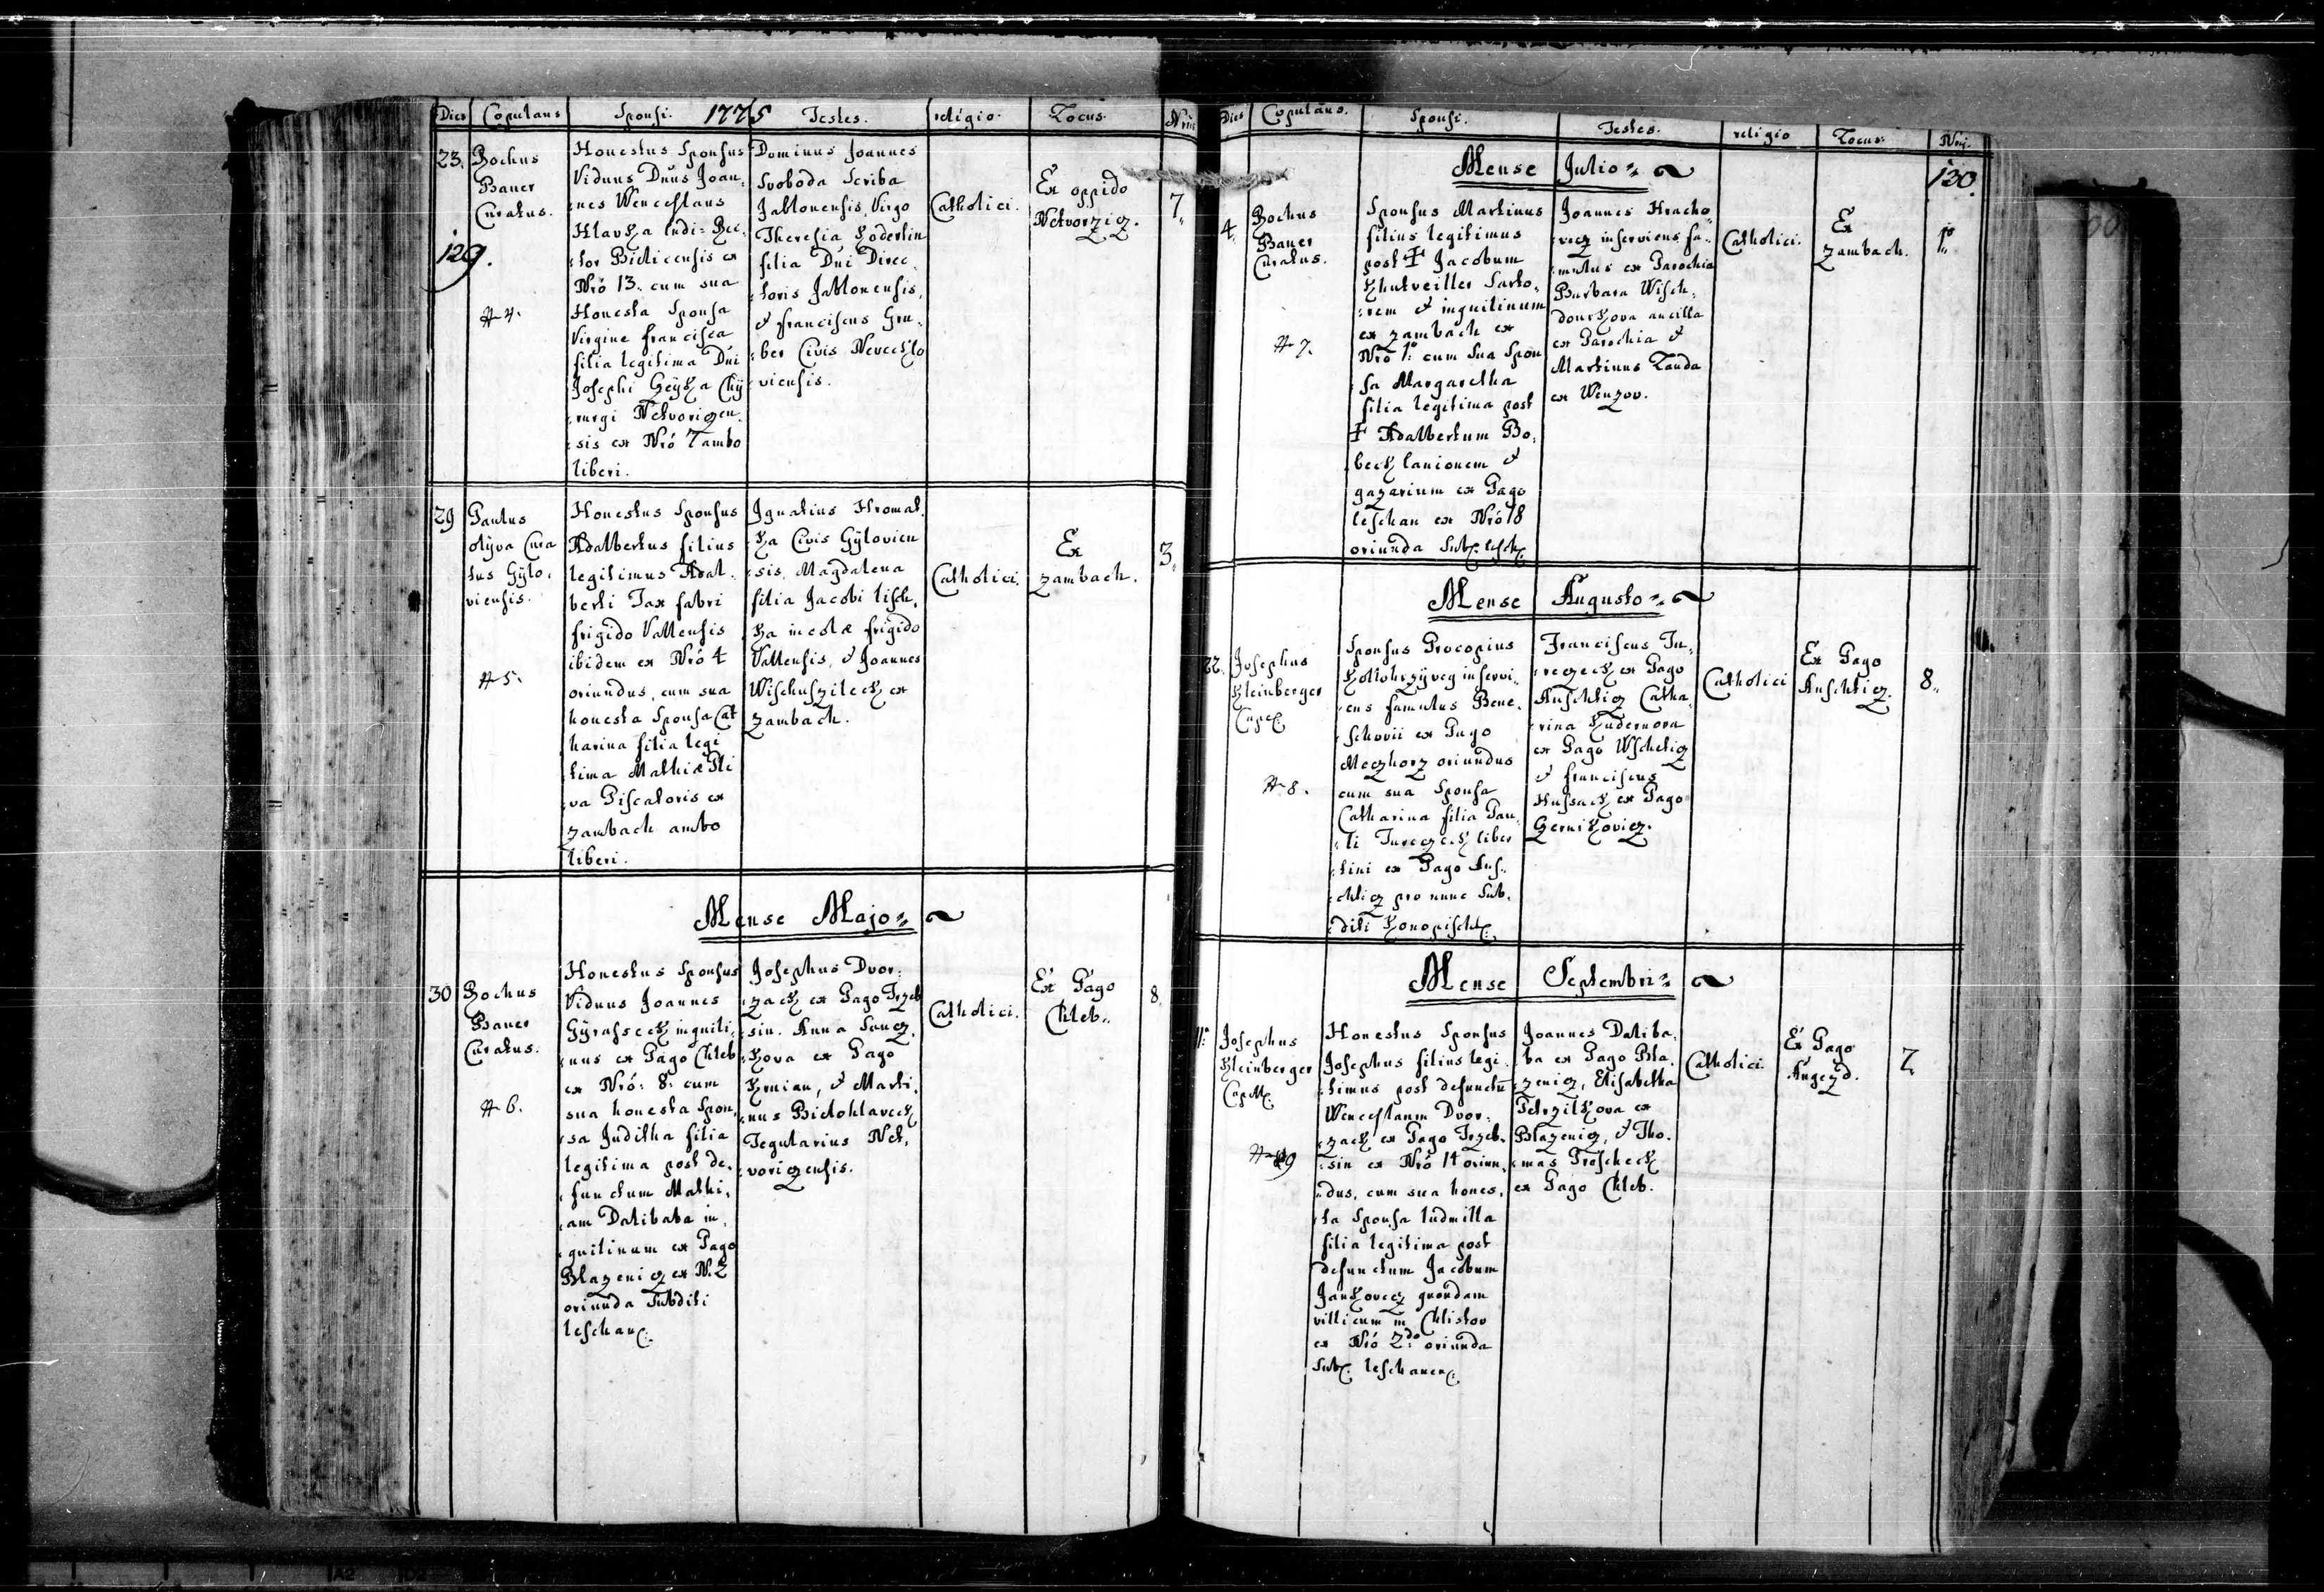 Dies Copulans Sponsi. 1775 Testes. religio. Locus. Nri
23. Rochus
Bauer
Curatus.
129.
# 4.
Honestus Sponsus
Viduus Dnus Joan,
:nes Wenceslaus
Hlavka ludi: Rec,
:tor Bieliczensis ex
Nrö 13. cum sua
Honesta Sponsa
Virgine Francisca
filia legitima Dni
Josephi Geyka Chy
:rurgi Netvoriczen
:sis ex Nrö 7 ambo
liberi.
Dominus Joannes
Svoboda Scriba
Jablonensis, Virgo
Theresia Koderlin
filia Dni Direc,
:toris Jablonensis,
& Franciscus Gru,
:ber Civis Neveklo
viensis.
Catholici.
Ex oppido
Netvorzicz.
7.
29 Paulus
olyva Cura
tus Gylo,
viensis.
# 5.
Honestus Sponsus
Adalbertus filius
legitimus Adal,
berti Tax fabri
frigido Vallensis
ibidem ex Nrö 4
oriundus, cum sua
honesta Sponsa Cat
harina filia legi
tima Mathiæ Pli
va Piscatoris ex
zambach ambo
liberi.
Ignatius Hromat,
ka Civis Gylovien
:sis, Magdalena
filia Jacobi lisch,
ka incolæ frigido
Vallensis, & Joannes
Wischuszileck ex
zambach.
Catholici.
Ex
zambach.
3.
Mense Majo
30 Rochus
Bauer
Curatus.
# 6.
Honestus Sponsus
Viduus Joannes
Gyrasseck inquili,
:nus ex Pago Chleb
ex Nrö: 8: cum
sua honesta Spon,
:sa Juditha filia
legitima post de,
:functum Mathi,
:am Dalibaba in,
:quilinum ex Pago
Blazenicz ex N. 2
oriunda Subditi
leschan:
Josephus Dvor,
:zack ex Pago Trzeb
:sin. Anna Sancz,
:kova ex Pago
Krnian, & Marti,
:nus Bielohlaveck
Tegularius Net,
:voriczensis.
Catholici.
Ex Pago
Chleb.
8.
Dies Copulans. Sponsi. Testes. religio Locus: Nri.
Mense Julio
130.
4. Rochus
Bauer
Curatus.
# 7.
Sponsus Martinus
filius legitimus
post ‡ Jacobum
Sarto,
:rem & inquilinum
ex zambach ex
Nrö 1º cum Sua Spon
:sa Margaretha
filia legitima post
‡ Adalbertum Bo,
beck lanionem &
gazarium ex Pago
leschan ex Nrö 18
oriunda Sub: lesch:
Joannes Hracho,
:vecz inserviens fa,
:mulus ex Parochia
Barbara Wisch,
dourkova ancilla
ex Parochia &
Martinus Landa
ex Wenzov.
Catholici.
Ex
zambach.
1º
Mense Augusto
22. Josephus
Kleinberger
Capel:
# 8.
Sponsus Procopius
inservi,
:ens famulus Bene,
:schovii ex Pago
Meczhorz oriundus
cum sua Sponsa
Catharina filia Pau,
:li Tureczeck liber
:tini ex Pago Aus,
:chticz pro nunc Sub,
:diti Konopischt:
Franciscus Tu,
:reczeck ex Pago
Auschticz Catha,
:rina Kudernova
ex Pago Wscheticz
& Franciscus
Hussack ex Pago
Gernikovicz.
Catholici
Ex Pago
Auschticz.
8.
Mense Septembri
11. Josephus
Kleinberger
Capell:
# 9
Honestus Sponsus
Josephus filius legi,
:timus post defunctū
Wenceslaum Dvor,
:zack ex Pago Trzeb,
:sin ex Nrö 14 oriun,
:dus, cum sua hones,
:ta Sponsa ludmilla
filia legitima post
defunctum Jacobum
Jankovecz quondam
villicum in Chlistov
ex Nrö 2do oriunda
Sub: leschanen:
Joannes Daliba,
:ba ex Pago Bla,
:zenicz, Elisabetha
Petrzilkova ex
Blazenicz, & Tho,
:mas Proscheck
ex Pago Chleb.
Catholici.
Ex Pago
Augezd.
7.